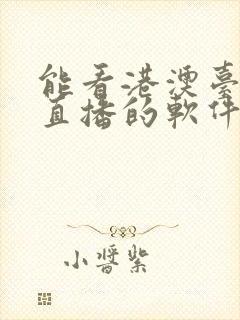 能看港澳臺
直播的軟件
小醬紫